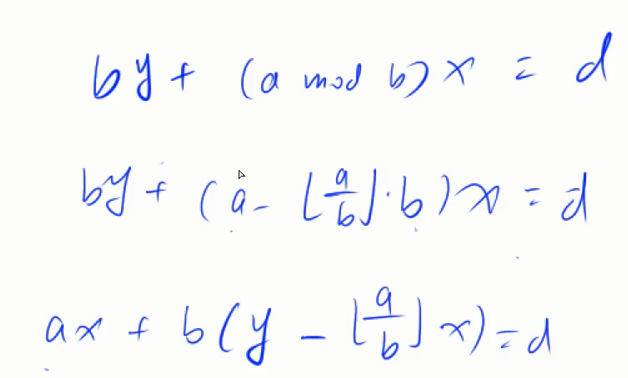 by + (a mod b) x = d
by + (a - ⌊a/b⌋ · b) x = d
ax + b(y - ⌊a/b⌋ x) = d